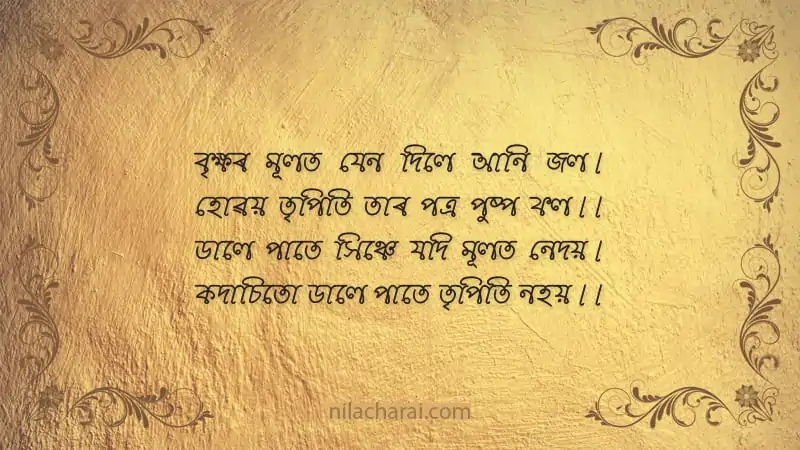 বৃক্ষৰ মূলত যেন দিলে আনি জল।
হোৱয় তৃপিতি তাৰ পত্ৰ পুষ্প ফল।।
ডালে পাতে সিঞ্চে যদি মূলত নেদয়।
কদাচিতো ডালে পাতে তৃপিতি নহয়।।
nilacharai.com